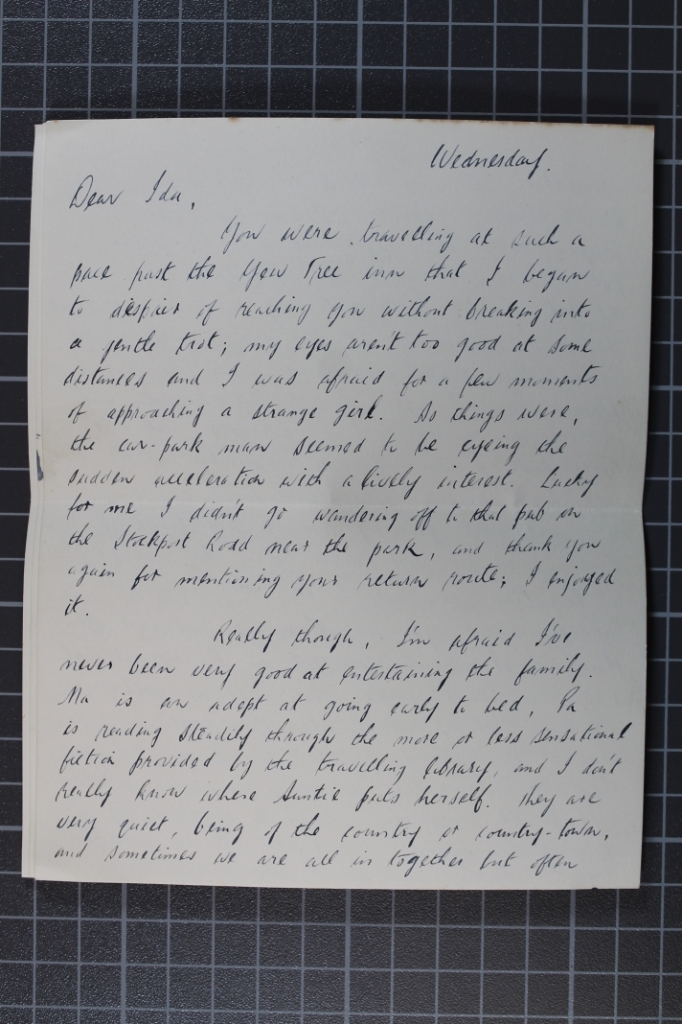 Wednesday.
Dear Ida,
You were travelling at such a
pace past the Yew Tree inn that I began
to despair of reaching you without breaking into
a gentle trot; my eyes aren't too good at some
distances and I was afraid for a few moments
of approaching a strange girl. As things were,
the car-park man seemed to be eyeing the
sudden acceleration with a lively interest. Lucky
for me I didn't go wandering off to that pub in
the Stockport Road near the park, and thank you
again for mentioning your return route; I enjoyed
it.
Really though, I'm afraid I've
never been very good at entertaining the family.
Ma is an adept at going early to bed, Pa
is reading steadily through the more or less sensational
fiction provided by the travelling library, and I don't
really know where Auntie puts herself. They are
very quiet, being of the country or country-town,
and sometimes we are all in together but often